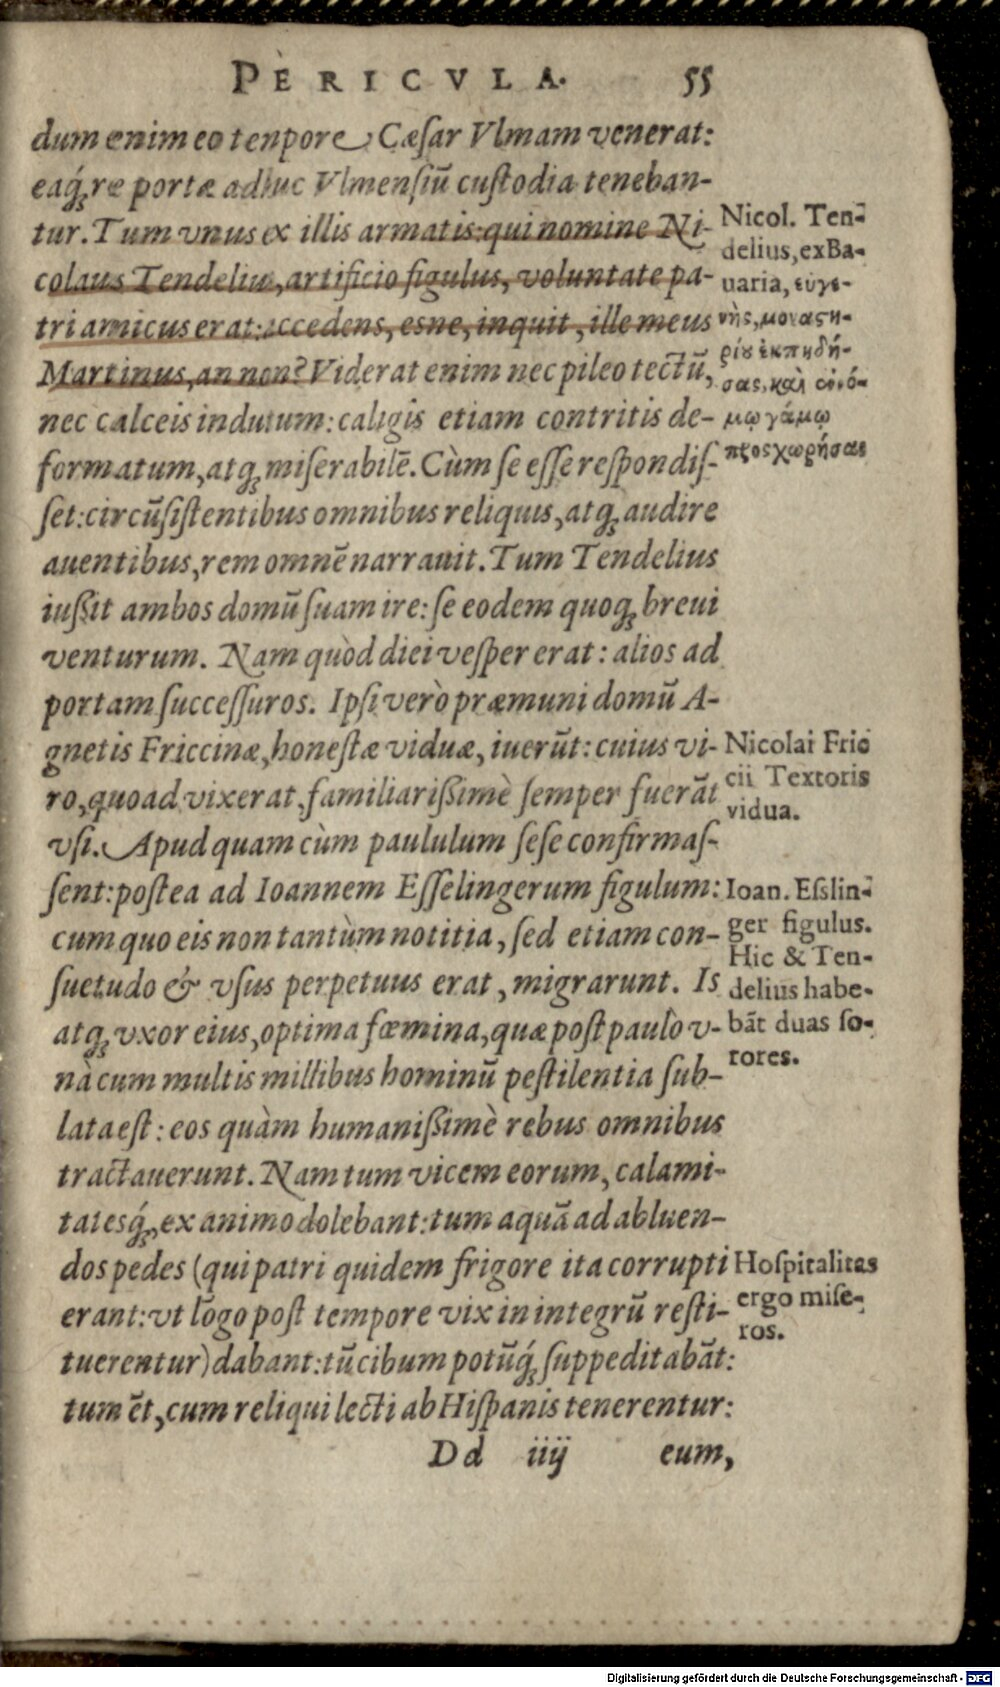 PERICVLA. 55
dum enim eo tenpore Cæſar Vlmam venerat:
eaq́; re portæ adhuc Vlmenſiū cuſtodia teneban-
tur. Tum vnus ex illis armatis: qui nomine Ni-
colaus Tendelius, artificio figulus, voluntate pa-
tri amicus erat: accedens, esne, inquit, ille meus
Martinus, an non? Viderat enim nec pileo tectū,
nec calceis indutum: caligis etiam contritis de-
formatum, atq; miſerabilē. Cùm ſe eſſe reſpondiſ-
ſet: circūſiſtentibus omnibus reliquis, atq; audire
auentibus, rem omnē narrauit. Tum Tendelius
iußit ambos domū ſuam ire: ſe eodem quoq; breui
venturum. Nam quòd diei veſper erat: alios ad
portam ſucceſſuros. Ipſi verò præmuni domū A-
gnetis Friccinæ, honeſtæ viduæ, iuerūt: cuius vi-
ro, quoad vixerat, familiarißimè ſemper fuerāt
vſi. Apud quam cùm paululum ſeſe confirmaſ-
ſent: poſtea ad Ioannem Eſſelingerum figulum:
cum quo eis non tantùm notitia, ſed etiam con-
ſuetudo & vſus perpetuus erat, migrarunt. Is
atq; vxor eius, optima fœmina, quæ poſt paulò v-
nà cum multis millibus hominū peſtilentia ſub-
lata eſt: eos quàm humanißimè rebus omnibus
tractauerunt. Nam tum vicem eorum, calami-
tatesq́;, ex animo dolebant: tum aquā ad abluen-
dos pedes (qui patri quidem frigore ita corrupti
erant: vt lōgo poſt tempore vix in integrū reſti-
tuerentur) dabant: tū cibum potūq́; ſuppeditabāt:
tum ēt, cum reliqui lecti ab Hiſpanis tenerentur:
Dd iiij eum,
Nicol. Ten-
delius, ex Ba-
uaria, εὐγε-
νὴς, μοναςη-
ρίου ἐκπηδή-
σας, καὶ
μῳ γάμῳ
προςχωρήσας
Nicolai Fric
cii Textoris
vidua.
Ioan. Eſslin-
ger figulus.
Hic & Ten-
delius habe-
bāt duas ſo-
rores.
Hoſpitalitas
ergo miſe-
ros.
Digitalisierung gefördert durch die Deutsche Forschungsgemeinschaft - DFG